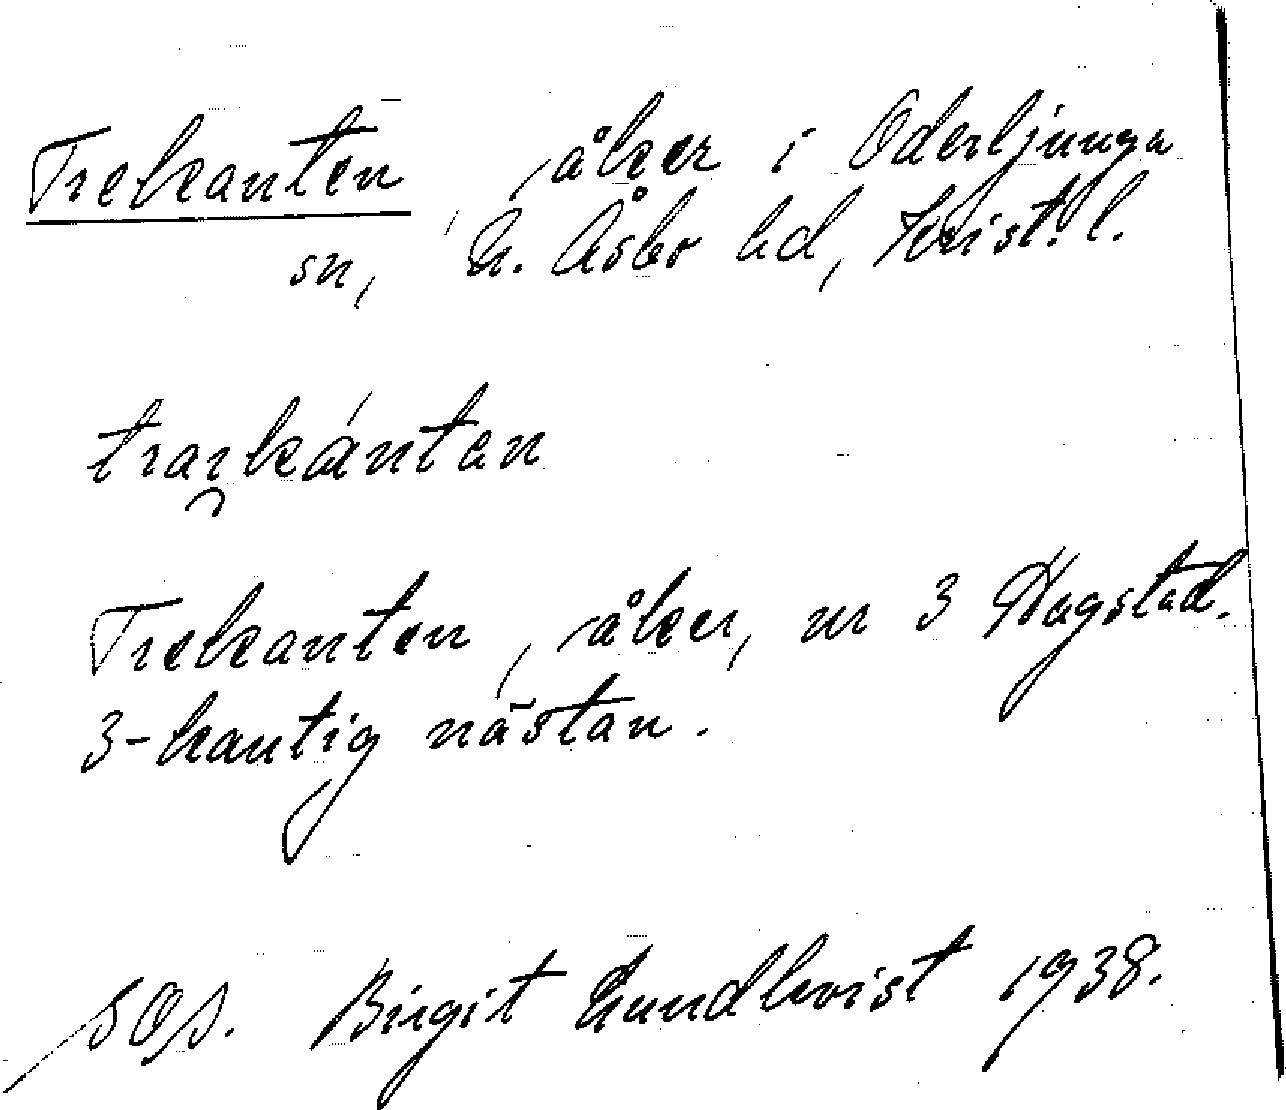 Trekanten, åker i Oderljunga
sn, N. Åsbo hd, Krist. l.
trarkántan
Trekanten, åker, nr 3 Hagstad.
3-kantig nästan.
SOS. Birgit Lundkvist 1938.